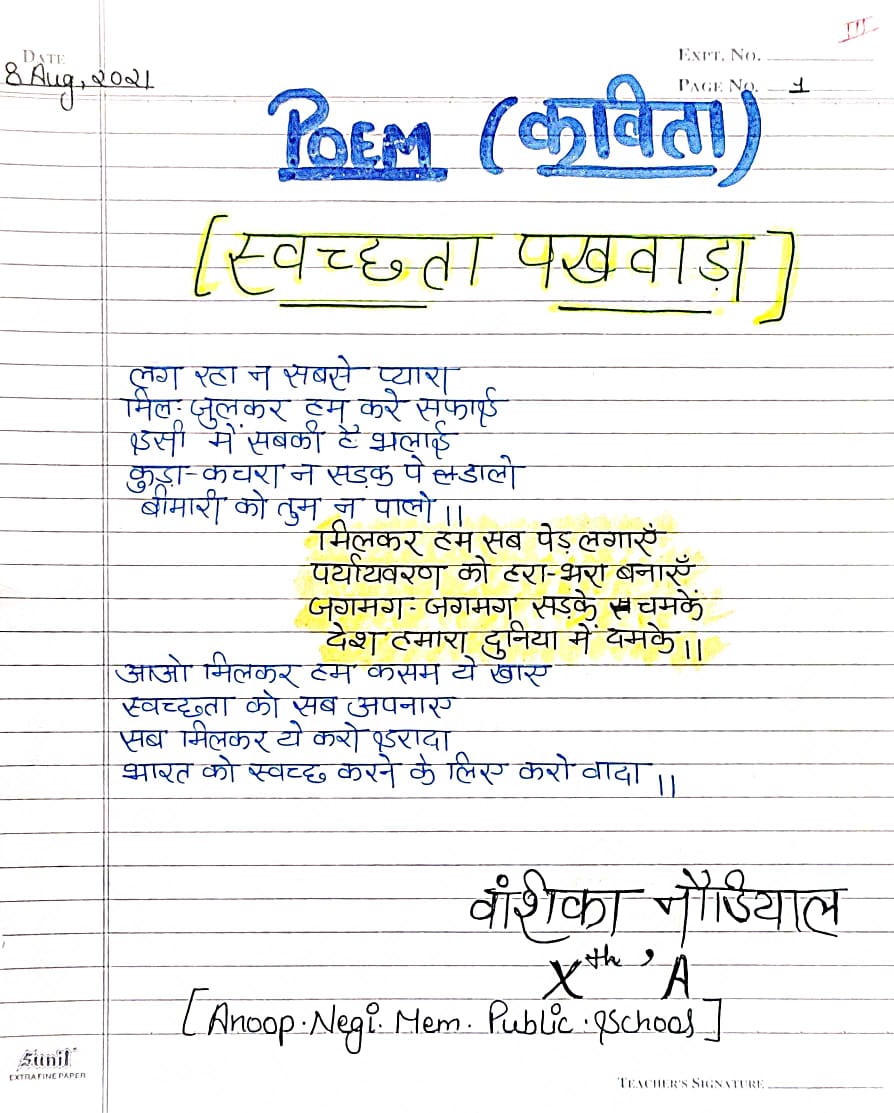 III
DATE
EXPT. NO.
8 Aug, 2021
PAGE NO. 1
POEM (कविता)
[स्वच्छता पखवाड़ा]
लग रहा न सबसे प्यारा
मिल-जुलकर हम करे सफाई
इसी में सबकी है भलाई
कुड़ा-कचरा न सड़क पे डालो
बीमारी को तुम न पालो।।
मिलकर हम सब पेड़ लगाएँ
पर्यायवरण को हरा-भरा बनाएँ
जगमग-जगमग सड़के चमकें
देश हमारा दुनिया में दमके।।
आओ मिलकर हम कसम ये खाए
स्वच्छता को सब अपनाए
सब मिलकर ये करो इरादा
भारत को स्वच्छ करने के लिए करो वादा।।
वांशिका नौडियाल
Xth, A
[Anoop. Negi. Mem. Public. School]
Sunil
EXTRA FINE PAPER
TEACHER'S SIGNATURE